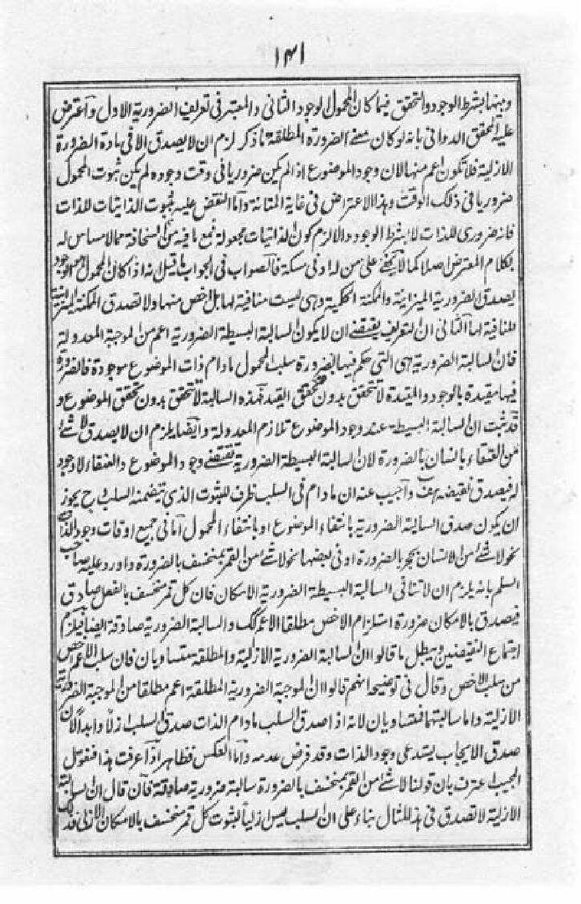 ۱۴۱
وبينهما بشرط الوجود والتحقق فيما كان المحمول الوجود الثانى والمعتبر فى تعريف الضرورية الاول وأعترض
عليه المحقق الدوانى بانه لو كان معنى الضرورة المطلقة ما ذكر لزم ان لا يصدق الا فى مادة الضرورة
الازلية فلا تكون اعم منها لان وجود الموضوع اذا لم يكن ضروريا فى وقت وجوده لم يكن ثبوت المحمول
ضروريا فى ذلك الوقت وهذا الاعتراض فى غاية المتانة وأما النقض عليه بثبوت الذاتيات للذات
فانه ضرورى للذات لا بشرط الوجود والا لزم كون الذاتيات مجعولة فمع ما فيه من السخافة مما لا مساس له
بكلام المعترض اصلا كما لا يخفى على من له ادنى مسكة فالصواب فى الجواب ما قيل انه اذا كان المحمول هو الوجود
يصدق الضرورية الميزانية والممكنة الحكمية وهى ليست منافية لها بل اخص منها ولا تصدق الممكنة الميزانية
المنافية لها الثانى ان التعريف يقتضى ان لا يكون السالبة البسيطة الضرورية اعم من الموجبة المعدولة
فان السالبة الضرورية هى التى حكم فيها بضرورة سلب المحمول ما دام ذات الموضوع موجودة فالضرورة
فيها مقيدة بالوجود والمقيدة لا تتحقق بدون تحقق القيد فهذه السالبة لا تتحقق بدون تحقق الموضوع و
قد ثبت ان السالبة البسيطة عند وجود الموضوع تلازم المعدولة وايضا يلزم ان لا يصدق لا شئ
من العنقاء بانسان بالضرورة لان السالبة البسيطة الضرورية تقتضى وجود الموضوع والعنقاء لا وجود
له فيصدق نقيضه هف وأجيب عنه ان ما دام فى السلب ظرف للثبوت الذى يتضمنه السلب فح يجوز
ان يكون صدق السالبة الضرورية بانتفاء الموضوع او بانتفاء المحمول اما فى جميع اوقات وجود الذات
نحو لا شئ من الانسان بحجر بالضرورة او فى بعضها نحو لا شئ من القمر بمنخسف بالضرورة واورد عليه صاحب
السلم بانه يلزم ان لا تنافى السالبة البسيطة الضرورية الامكان فان كل قمر منخسف بالفعل صادق
فيصدق بالامكان ضرورة استلزام الاخص مطلقا الاعم كك والسالبة الضرورية صادقة ايضا فيلزم
اجتماع النقيضين ويبطل ما قالوا ان السالبة الضرورية الازلية والمطلقة متساويان فان سلب الاعم اخص
من سلب الاخص وقال فى توضيحه انهم قالوا ان الموجبة الضرورية المطلقة اعم مطلقا من الموجبة الضرورية
الازلية واما سالبتهما فمتساويان لانه اذا صدق السلب ما دام الذات صدق السلب ازلا وابدا لان
صدق الايجاب يستدعى وجود الذات وقد فرض عدمه وأما العكس فظاهر اذا عرفت هذا فنقول
المجيب اعترف بان قولنا لا شئ من القمر بمنخسف بالضرورة سالبة ضرورية صادقة فان قال ان السالبة
الازلية لا تصدق فى هذا المثال بناء على ان السلب ليس ازليا لثبوت كل قمر منخسف بالامكان الازلى